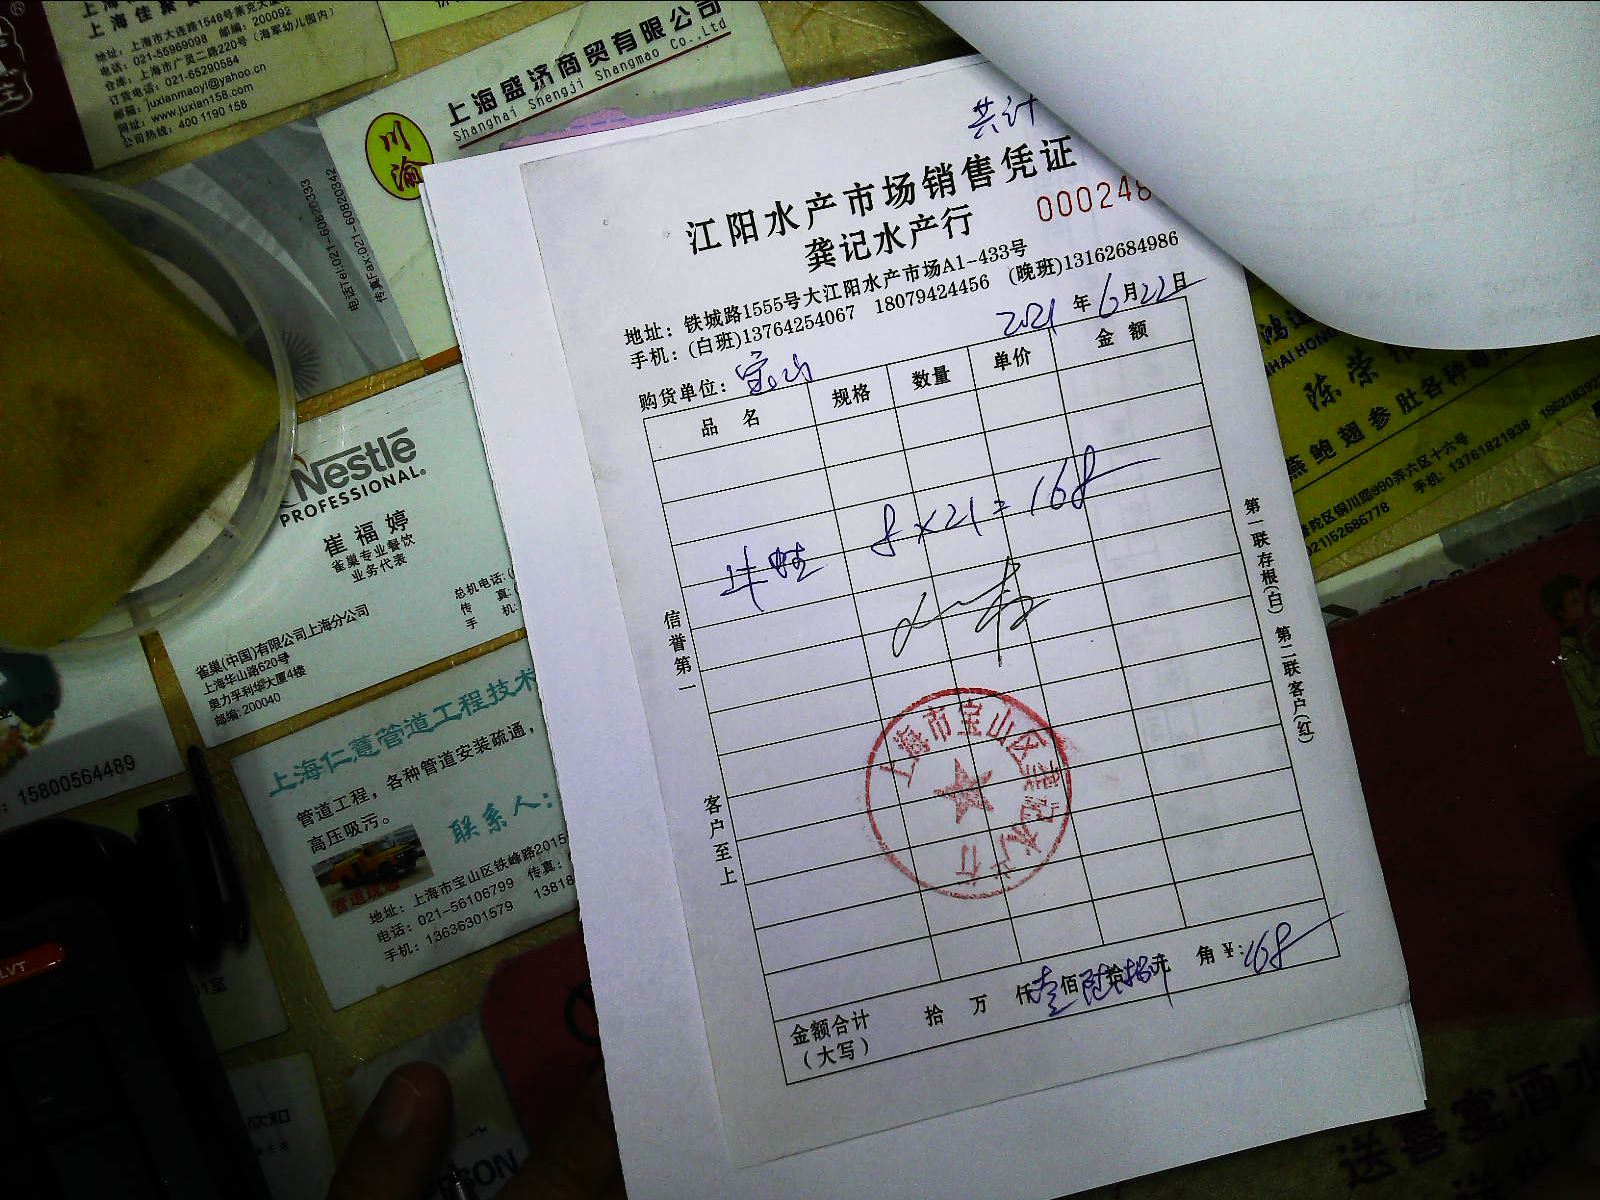 上海佳聚
地址：上海市大连路1548号莱克大厦
电话：021-55969098 邮编：200092
仓库：上海市广灵二路220号（海军幼儿园内）
订货电话：021-65290584
邮箱：juxianmaoyi@yahoo.cn
网址：www.juxian158.com
公司热线：400 1190 158
川渝
上海盛济商贸有限公司
Shanghai Shengji Shangmao Co.,Ltd
电话Tel:021-60820393
传真Fax:021-60820342
共计
江阳水产市场销售凭证
龚记水产行
000248
地址：铁城路1555号大江阳水产市场A1-433号
手机：(白班)13764254067 18079424456 (晚班)13162684986
2021年6月22日
购货单位：宝山
品名 规格 数量 单价 金额
牛蛙 8×21=168
信誉第一
客户至上
第一联存根(白) 第二联客户(红)
上海市宝山区龚记水产行
金额合计(大写) 拾 万 仟壹佰陆拾捌元 角 ¥:168
Nestlé
PROFESSIONAL
崔福婷
雀巢专业餐饮
业务代表
总机电话:(
传 真:
手 机:
雀巢(中国)有限公司上海分公司
上海华山路620号
奥力孚利华大厦4楼
邮编:200040
上海仁慧管道工程技术
管道工程，各种管道安装疏通，
高压吸污。
联系人：
管道疏通
地址：上海市宝山区铁峰路2015
电话：021-56106799 传真：
手机：13636301579 13818
：15800564489
LVT
陈荣
燕鲍翅参肚各种
普陀区铜川路990弄六区十六号
(021)52686778 手机：13761821938 1862183925
送喜宴酒水